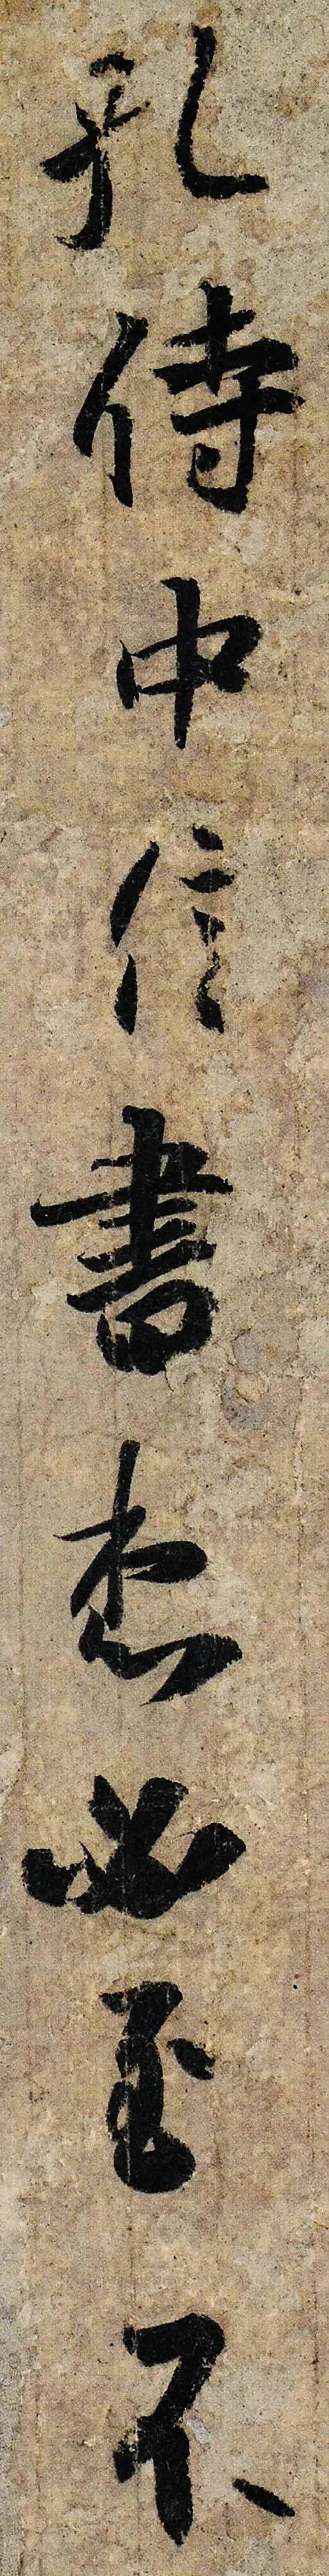 孔侍中信書想必至不